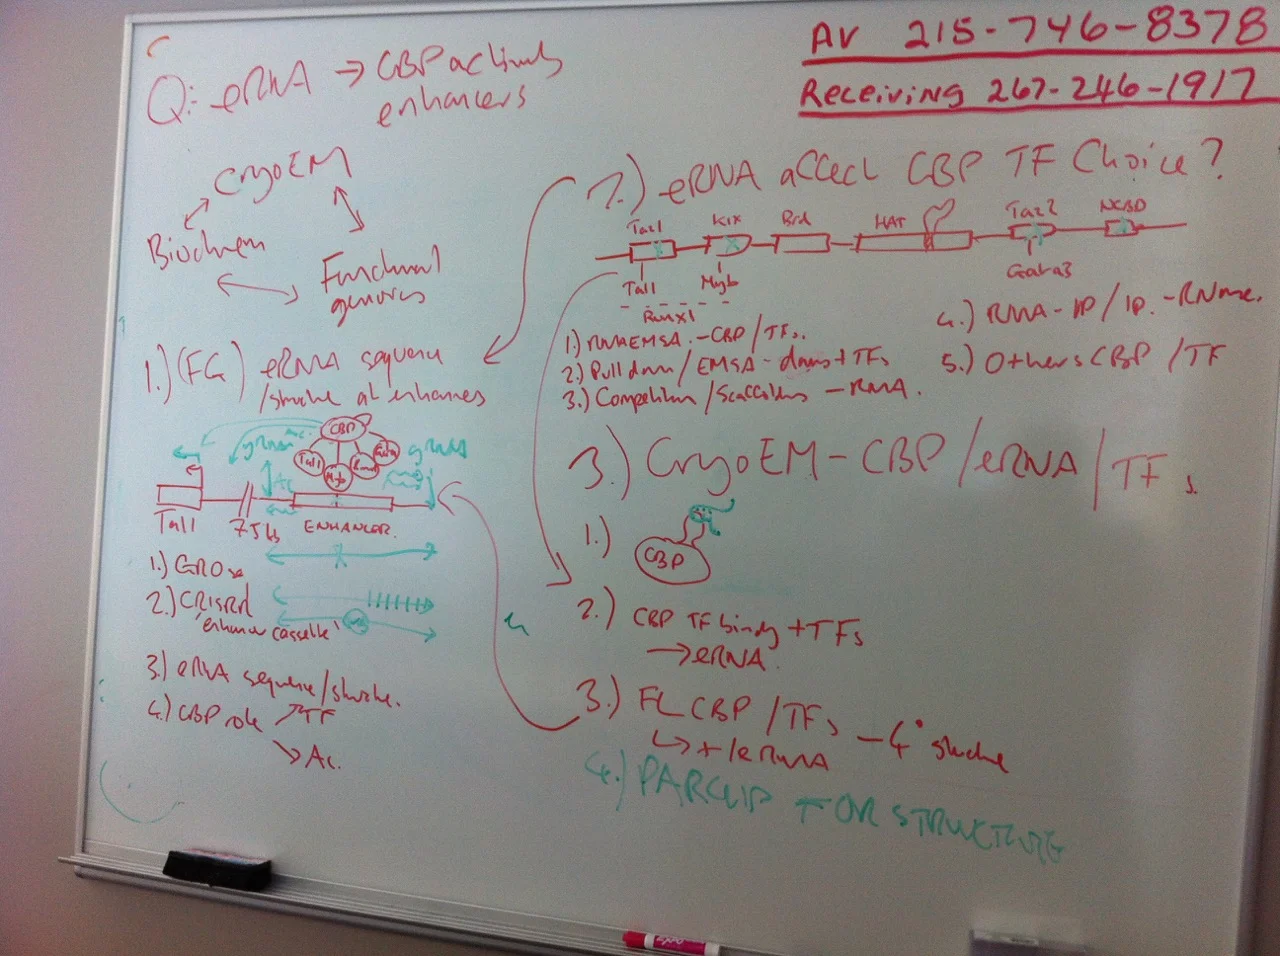 AV 215-746-8378
Receiving 267-246-1917
Q: eRNA → CBP activity
enhancers
CryoEM
Biochem
Functional
genomics
1.) (FG) eRNA sequence
/structure at enhancers
CBP
Tal1
Myb
gRNA
Ac.
gRNA
Ac
Tal1
75kb
ENHANCER.
1.) GRO
2.) CRISPR
'enhancer cassette'
3.) eRNA sequence/structure.
4.) CBP role → TF
→ Ac.
2.) eRNA affect CBP TF Choice?
Taz1 Kix Brd HAT Taz2 NCBD
Tal1 Myb Gata3
Runx1
1.) RNA EMSA. - CBP/TFs.
2.) Pull down/EMSA - doms + TFs
3.) Competition/Scaffolding - RNA.
4.) RNA-IP/IP. - RNase.
5.) Others CBP/TF
3.) CryoEM - CBP/eRNA/TFs.
1.) CBP
2.) CBP TF binding + TFs
→ eRNA
3.) FL CBP/TFs - 4° structure
↳ +/eRNA
4.) PARCLIP FOR STRUCTURE